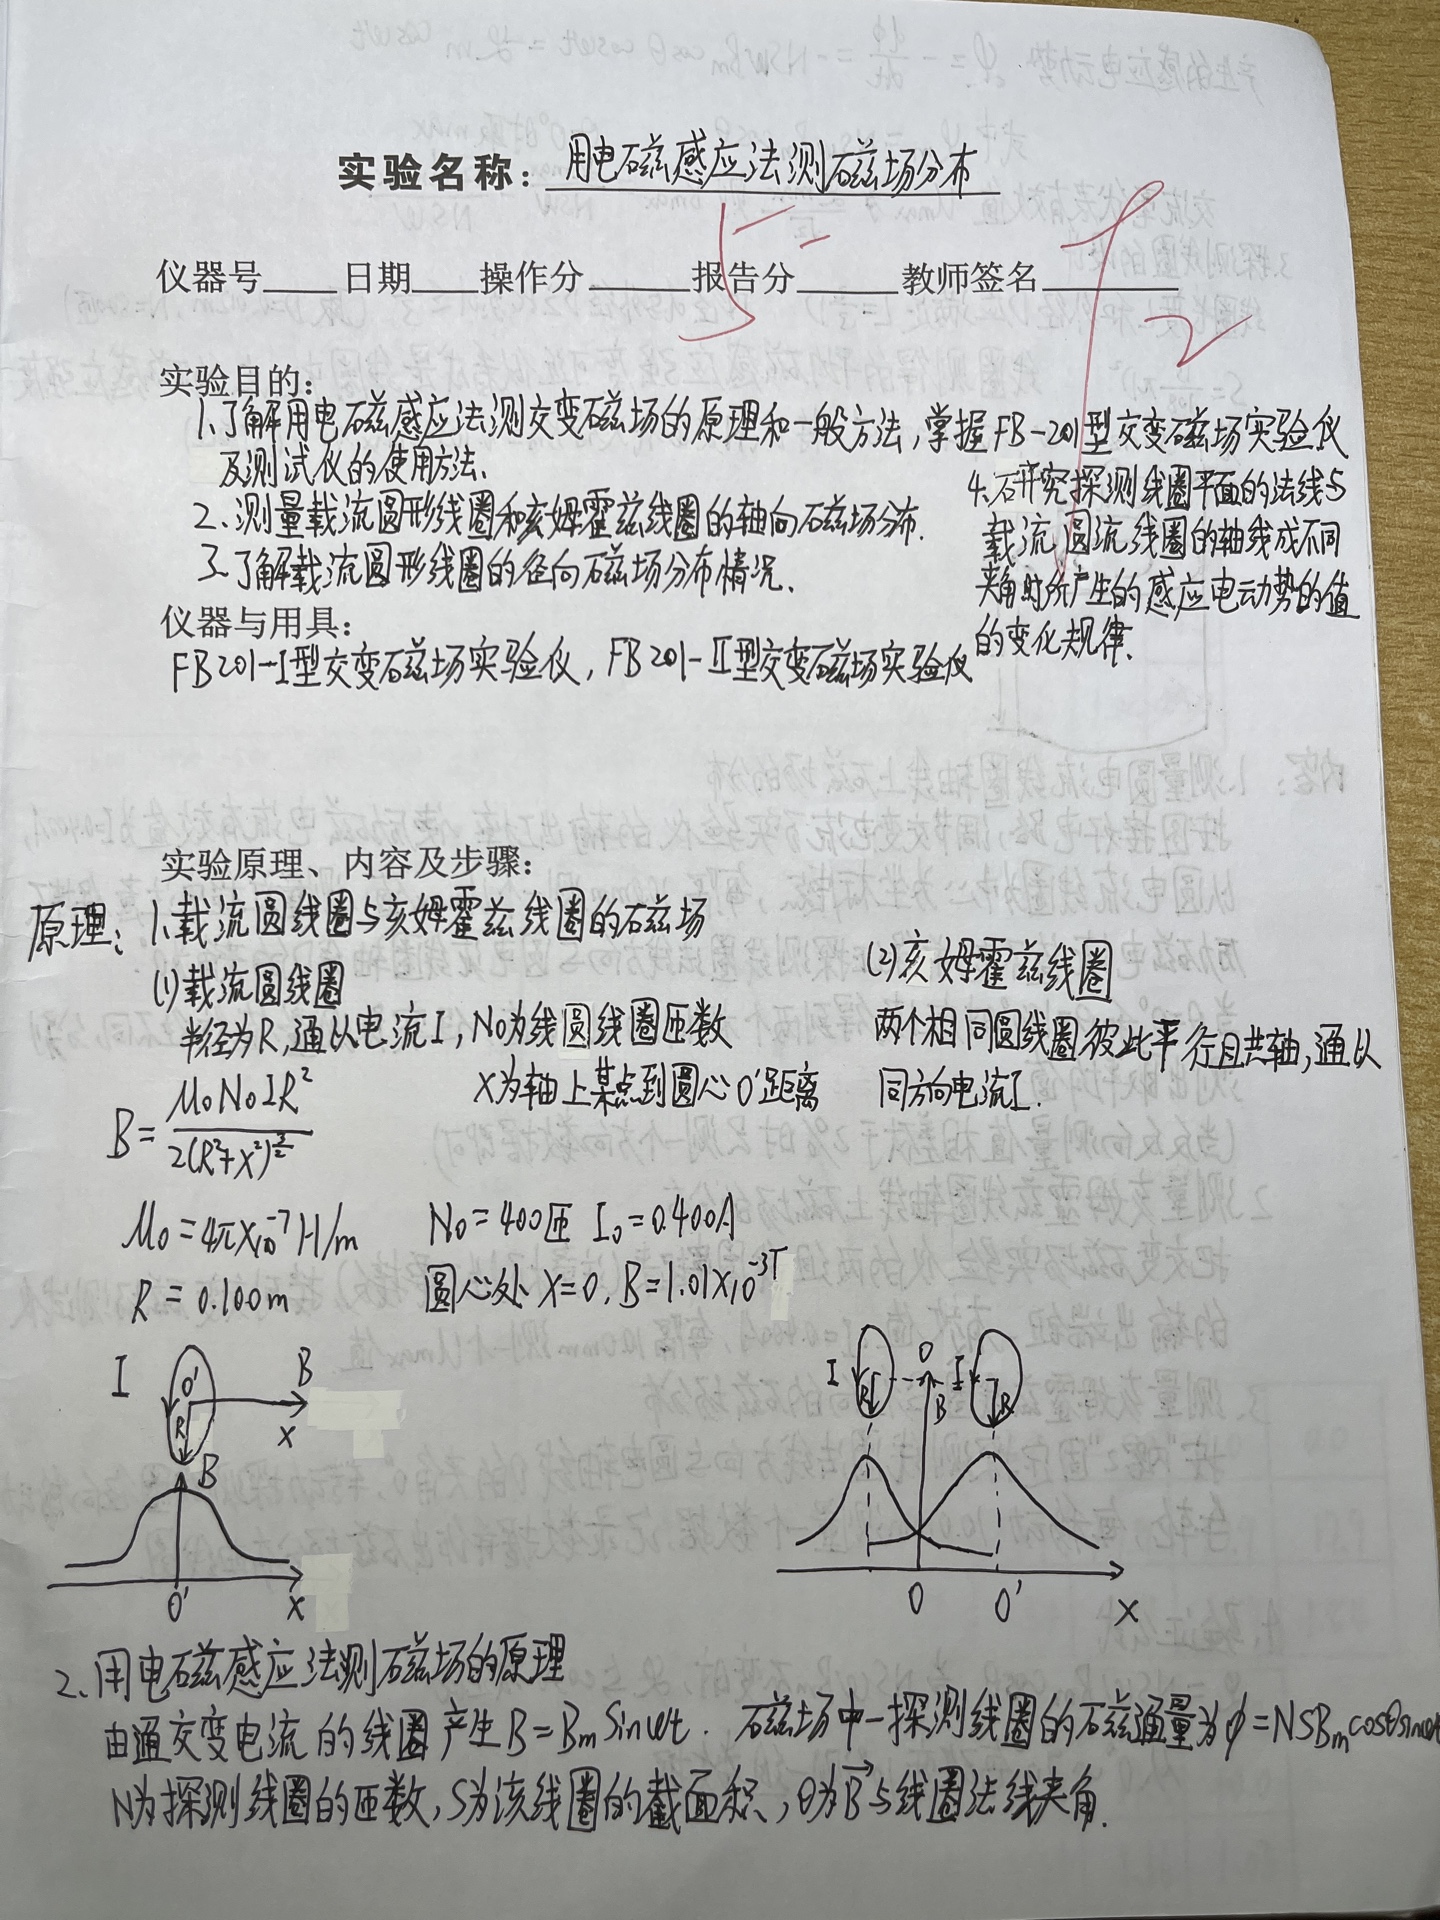 实验名称：用电磁感应法测磁场分布
仪器号 日期 操作分 报告分 教师签名
5⁻
实验目的：
1.了解用电磁感应法测交变磁场的原理和一般方法，掌握FB-201型交变磁场实验仪
及测试仪的使用方法.
2、测量载流圆形线圈和亥姆霍兹线圈的轴向磁场分布.
3、了解载流圆形线圈的径向磁场分布情况.
4、研究探测线圈平面的法线与
载流圆流线圈的轴线成不同
夹角时所产生的感应电动势的值
的变化规律.
仪器与用具：
FB201-I型交变磁场实验仪，FB201-Ⅱ型交变磁场实验仪
实验原理、内容及步骤：
原理：1.载流圆线圈与亥姆霍兹线圈的磁场
(1)载流圆线圈
半径为R,通以电流I，N₀为线圆线圈匝数
X为轴上某点到圆心O'距离
B=μ₀N₀IR²/2(R²+X²)^(3/2)
μ₀=4π×10⁻⁷H/m N₀=400匝 I₀=0.400A
R=0.100m 圆心处X=0, B=1.01×10⁻³T
(2)亥姆霍兹线圈
两个相同圆线圈彼此平行且共轴,通以
同方向电流I.
I O' R B X
B
O' X
I R O I R
B
O O' X
2、用电磁感应法测磁场的原理
由通交变电流的线圈产生B=Bm sinωt. 磁场中一探测线圈的磁通量为φ=NSBm cosθsinωt
N为探测线圈的匝数,S为该线圈的截面积,θ为B⃗与线圈法线夹角.